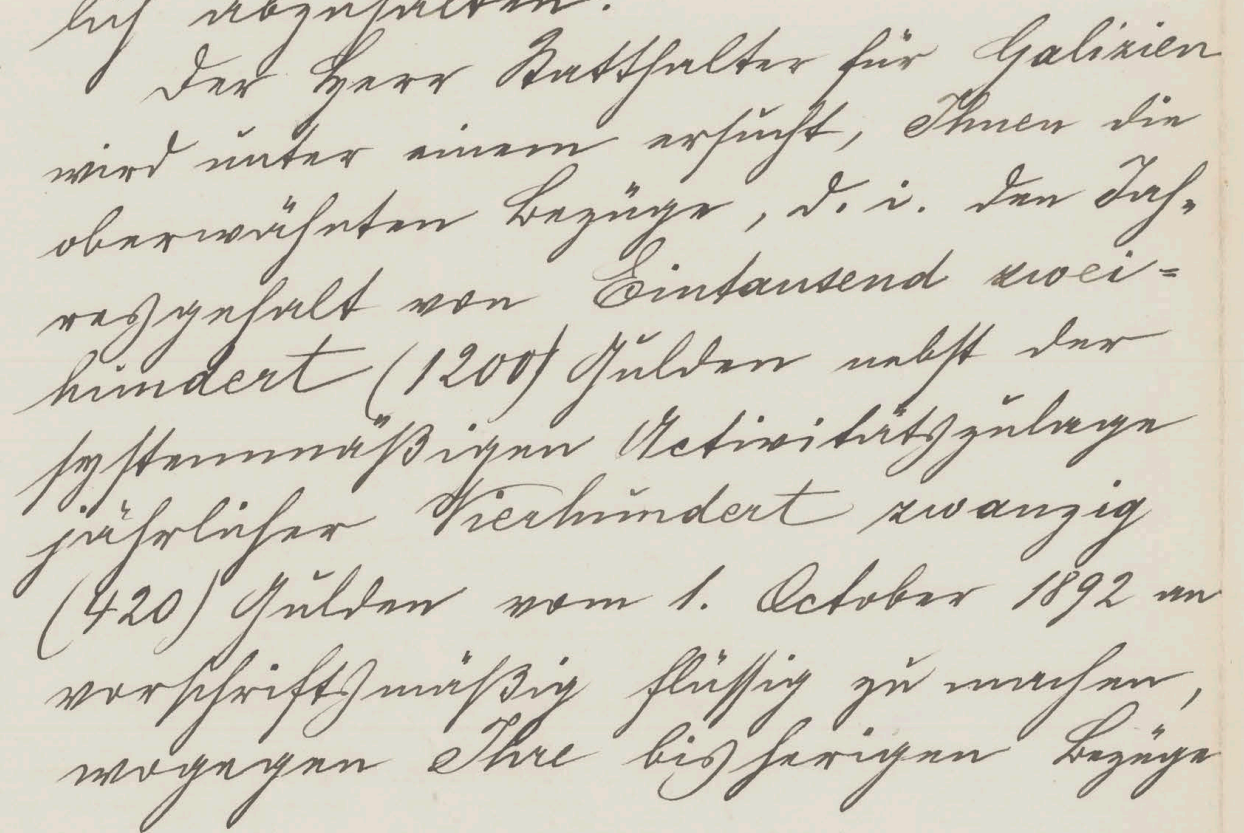 lich abzuhalten.
Der Herr Statthalter für Galizien
wird unter einem ersucht, Ihnen die
oberwähnten Bezüge, d. i. den Jah-
resgehalt von Eintausend zwei-
hundert (1200) Gulden nebst der
systemmäßigen Activitätszulage
jährlicher Vierhundert zwanzig
(420) Gulden vom 1. October 1892 an
vorschriftsmäßig flüssig zu machen,
wogegen Ihre bisherigen Bezüge